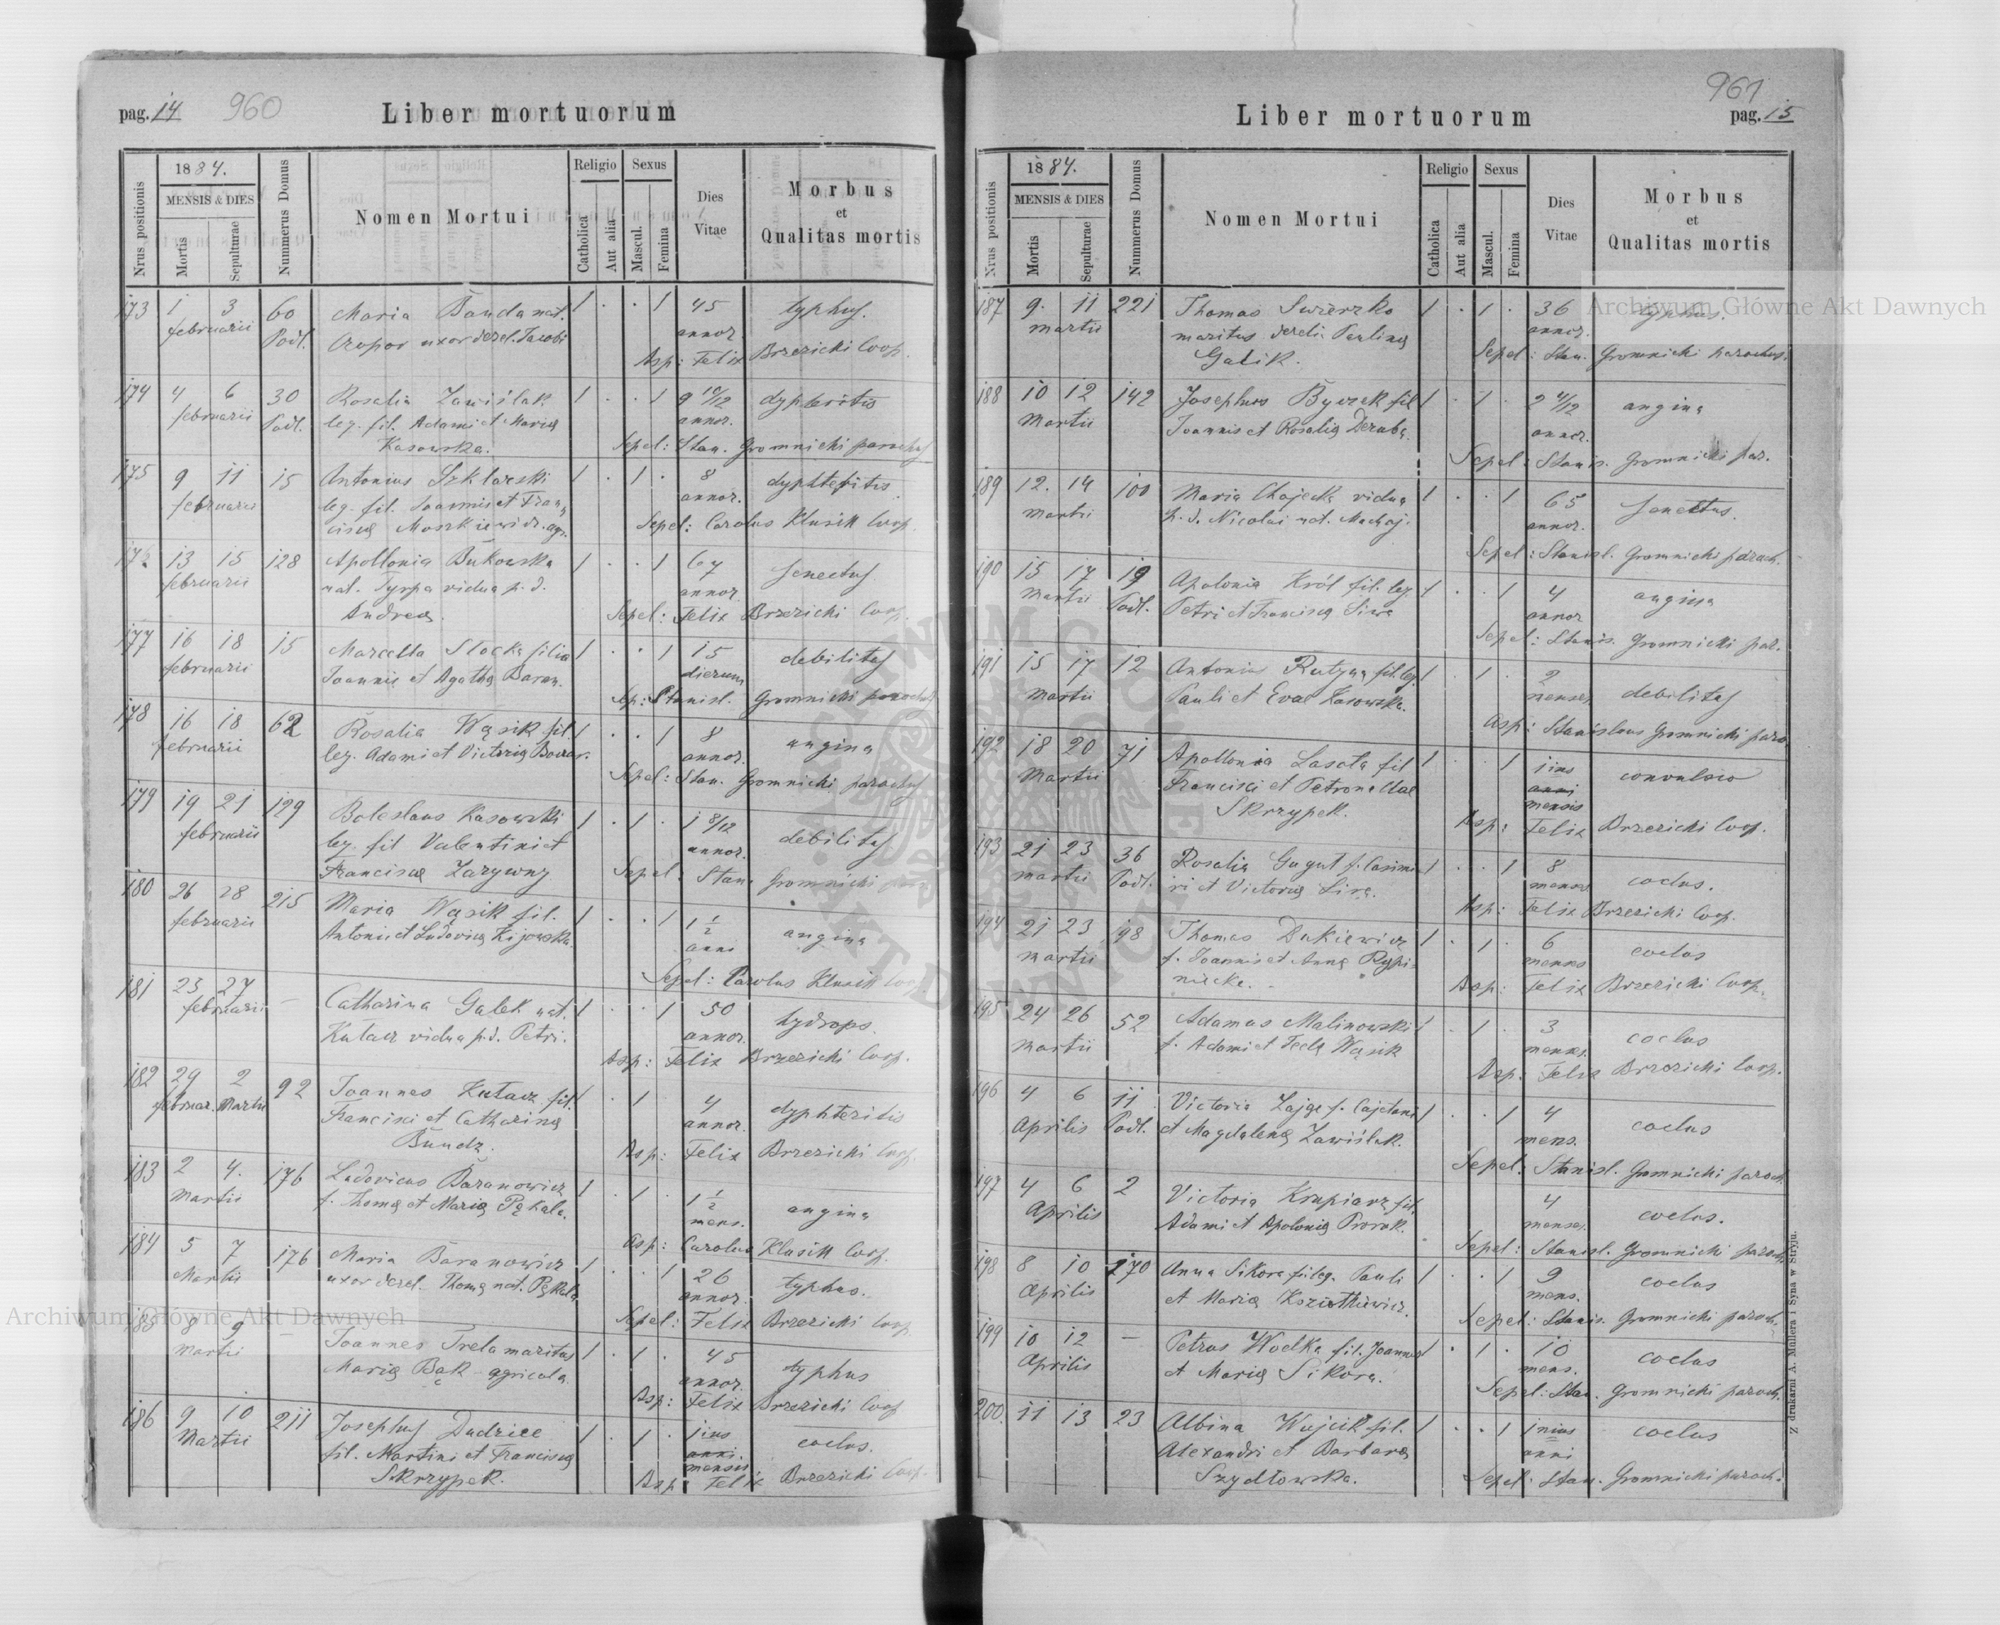 pag. 14 960 Liber mortuorum
1884.
Nrus positionis
MENSIS & DIES
Mortis
Sepulturae
Nummerus Domus
Nomen Mortui
Religio
Catholica
Aut alia
Sexus
Mascul.
Femina
Dies
Vitae
Morbus
et
Qualitas mortis
173 1 3 60 Maria Banda nat. 1 . . 1 45 typhus.
februarii Podl. uxor derel. Jacobi annor.
Asp: Felix Brzezicki Coop.
174 4 6 30 Rosalia Zawiślak 1 . . 1 9 10/12 dypteritis
februarii Podl. leg. fil. Adami et Mariæ annor.
Kasowska. Sepel: Stan. Gromnicki parochus
175 9 11 15 Antonius Szklarski 1 . 1 . 8 dyphteritis
februarii leg. fil. Joannis et Fran- annor.
ciscæ Moszkiewicz. agr. Sepel: Carolus Klusik Coop.
176 13 15 128 Apollonia Bukowska 1 . . 1 67 senectus
februarii nat. Tyrpa vidua p. d. annor.
Andreæ. Sepel: Felix Brzezicki Coop.
177 16 18 15 Marcella Stocka filia 1 . . 1 15 debilitas
februarii Joannis et Agathæ Baran. dierum
Sep: Stanisl. Gromnicki parochus
178 16 18 62 Rosalia Wąsik fil. 1 . . 1 8 angina
februarii leg. Adami et Victoriæ annor.
Sepel: Stan. Gromnicki parochus
179 19 21 129 Boleslaus Kasowski 1 . 1 . 1 8/12 debilitas
februarii leg. fil Valentini et annor.
Franciscæ Zarywny Sepel. Stan. Gromnicki
180 26 28 215 Maria Wąsik fil. 1 . . 1 1 1/2 angina
februarii Antonii et Ludovicæ Kijowska. anni
Sepel: Carolus Klusik Coop
181 25 27 — Catharina Galek nat. 1 . . 1 50 hydrops.
februarii Kulacz vidua p. d. Petri. annor.
Asp: Felix Brzezicki Coop.
182 29 2 92 Joannes Kulacz fil. 1 . 1 . 4 dyphteritis
februar. Martii Francisci et Catharinæ annor.
Bundz. Asp: Felix Brzezicki Coop.
183 2 4. 176 Ludovicus Baranowicz 1 . 1 . 1 1/2 angina
Martii f. Thomæ et Mariæ Pękala. mens.
Asp: Carolus Klusik Coop.
184 5 7 176 Maria Baranowicz 1 . . 1 26 typhus.
Martii uxor derel. Thomæ nat. Pękala annor.
Sepel: Felix Brzezicki Coop
185 8 9 — Joannes Trela maritus 1 . 1 . 45 typhus
Martii Mariæ Bąk agricola annor.
Asp: Felix Brzezicki Coop
186 9 10 211 Josephus Dudzicz 1 . 1 . 1ius coelus.
Martii fil. Martini et Franciscæ anni. mensis
Skrzypek. Asp: Felix Brzezicki Coop.
961
Liber mortuorum pag. 15
1884.
Nrus positionis
MENSIS & DIES
Mortis
Sepulturae
Nummerus Domus
Nomen Mortui
Religio
Catholica
Aut alia
Sexus
Mascul.
Femina
Dies
Vitae
Morbus
et
Qualitas mortis
187 9. 11 221 Thomas Swierzko 1 . 1 . 36 typhus.
martii maritus derel: Paulinæ annor.
Galik. Sepel: Stan. Gromnicki parochus.
188 10 12 142 Josephus Byczek fil 1 . 1 . 2 4/12 angina
Martii Joannis et Rosaliæ Deruba. annor.
Sepel: Stanis. Gromnicki par.
189 12. 14 100 Maria Chajecka vidua 1 . . 1 65 senectus.
Martii p. d. Nicolai nat. Machaj. annor.
Sepel: Stanisl. Gromnicki paroch.
190 15 17 19 Apolonia Król fil. leg. 1 . . 1 4 angina
Martii Podl. Petri et Franciscæ Siwa annor
Sepel: Stanis. Gromnicki par.
191 15 17 12 Antonius Rutyna fil. leg. 1 . 1 . 2 debilitas
Martii Pauli et Evae Kasowska. menses
Asp: Stanislaus Gromnicki paro
192 18 20 71 Apollonia Lasota fil 1 . . 1 1ius convulsio
Martii Francisci et Petronellae anni mensis
Skrzypek. Asp: Felix Brzezicki Coop.
193 21 23 36 Rosalia Gugut f. Casimi- 1 . . 1 8 coelus.
Martii Podl. ri et Victoriæ Liza. menses
Asp: Felix Brzezicki Coop.
194 21 23 198 Thomas Dukiewicz 1 . 1 . 6 coelus
Martii f. Joannis et Annæ Rypi- menses
nicka. Asp: Felix Brzezicki Coop.
195 24 26 52 Adamus Malinowski 1 . 1 . 3 coelus
Martii f. Adami et Teclæ Wąsik menses.
Asp. Felix Brzezicki Coop.
196 4 6 11 Victoria Zajge f. Cajetani 1 . . 1 4 coelus
Aprilis Podl. et Magdalenæ Zawiślak. mens.
Sepel: Stanisl. Gromnicki paroch.
197 4 6 2 Victoria Krupiarz fil. 4 coelus.
Aprilis Adami et Apoloniæ Prorok. menses.
Sepel: Stanisl. Gromnicki paroch.
198 8 10 270 Anna Sikora fil leg. Pauli 1 . . 1 9 coelus
Aprilis et Mariæ Koziatkiewicz. mens.
Sepel: Stanis. Gromnicki paroch.
199 10 12 — Petrus Wodka fil. Joannis 1 . 1 . 10 coelus
Aprilis et Mariæ Sikora. mens.
Sepel: Stan. Gromnicki paroch.
200. 11 13 23 Albina Wujcik fil. 1 . . 1 1nius coelus
Alexandri et Barbaræ anni
Szydłowska. Sepel. Stan. Gromnicki paroch.
Z drukarni A. Mullera i Syna w Stryju.
Archiwum Główne Akt Dawnych
Archiwum Główne Akt Dawnych
ARCHIWUM GŁÓWNE AKT DAWNYCH